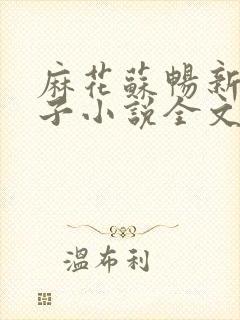 麻花蘇暢新
子小說全文
溫布利